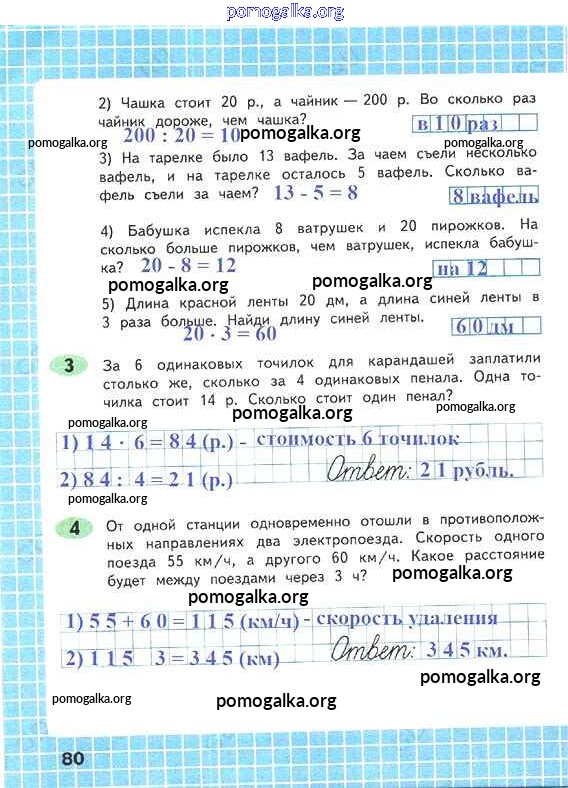 pomogalka.org
2) Чашка стоит 20 р., а чайник — 200 р. Во сколько раз
чайник дороже, чем чашка?
200 : 20 = 10
pomogalka.org
в 10 раз
pomogalka.org
pomogalka.org
3) На тарелке было 13 вафель. За чаем съели несколько
вафель, и на тарелке осталось 5 вафель. Сколько ва-
фель съели за чаем? 13 - 5 = 8
8 вафель
4) Бабушка испекла 8 ватрушек и 20 пирожков. На
сколько больше пирожков, чем ватрушек, испекла бабуш-
ка? 20 - 8 = 12
на 12
pomogalka.org
pomogalka.org
5) Длина красной ленты 20 дм, а длина синей ленты в
3 раза больше. Найди длину синей ленты.
20 · 3 = 60
60 дм
pomogalka.org
3 За 6 одинаковых точилок для карандашей заплатили
столько же, сколько за 4 одинаковых пенала. Одна то-
чилка стоит 14 р. Сколько стоит один пенал?
pomogalka.org
pomogalka.org
pomogalka.org
1) 14 · 6 = 84 (р.) - стоимость 6 точилок
2) 84 : 4 = 21 (р.)
Ответ: 21 рубль.
pomogalka.org
4 От одной станции одновременно отошли в противополож-
ных направлениях два электропоезда. Скорость одного
поезда 55 км/ч, а другого 60 км/ч. Какое расстояние
будет между поездами через 3 ч?
pomogalka.org
1) 55 + 60 = 115 (км/ч) - скорость удаления
2) 115 3 = 345 (км)
Ответ: 345 км.
pomogalka.org
pomogalka.org
pomogalka.org
80